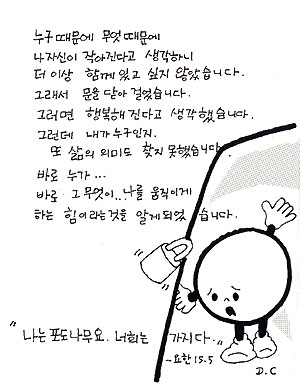 누구 때문에 무엇 때문에
나자신이 작아진다고 생각하니
더 이상 함께 있고 싶지 않았습니다.
그래서 문을 닫아 걸었습니다.
그러면 행복해진다고 생각했습니다.
그런데 내가 누구인지.
또 삶의 의미도 찾지 못했습니다.
바로 누가...
바로 그 무엇이...나를 움직이게
하는 힘이라는것을 알게되었습니다.
"나는 포도나무요. 너희는 가지다."
~요한 15.5
D.C